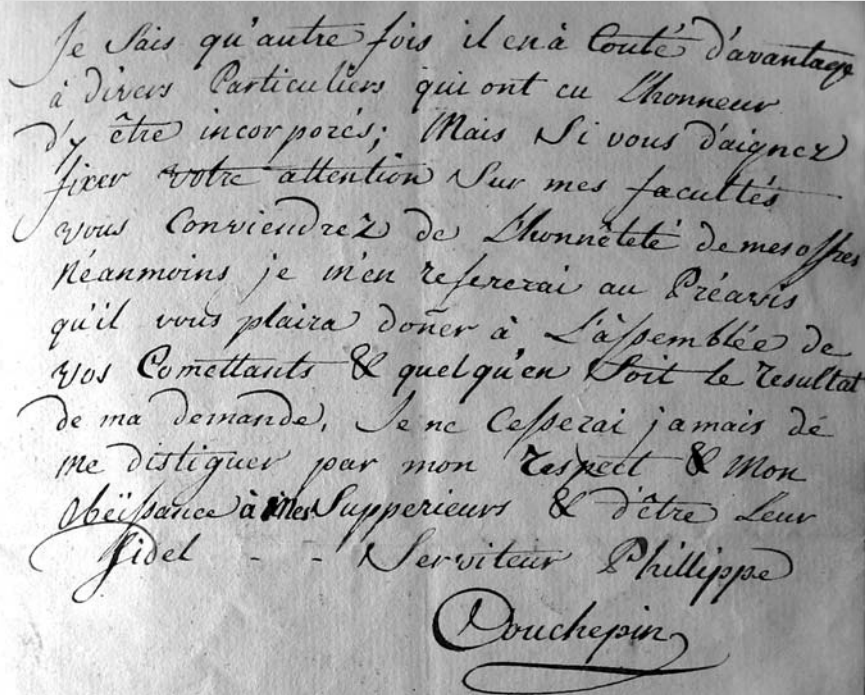 Je Sais qu'autre fois il en à Couté d'avantage
à divers Particuliers qui ont eu L'honneur
d'y être incorporés; Mais Si vous daignez
fixer votre attention Sur mes facultés
vous Conviendrez de L'honnêteté de mes offres
Néanmoins je m'en refererai au Préavis
qu'il vous plaira doñer à L'assemblée de
vos Comettants & quelqu'en Soit le resultat
de ma demande, Je ne Cesserai jamais de
me distiguer par mon respect & Mon
Obeïssance à mes Supperieurs & d'être Leur
fidel - - Serviteur Phillippe
Couchepin